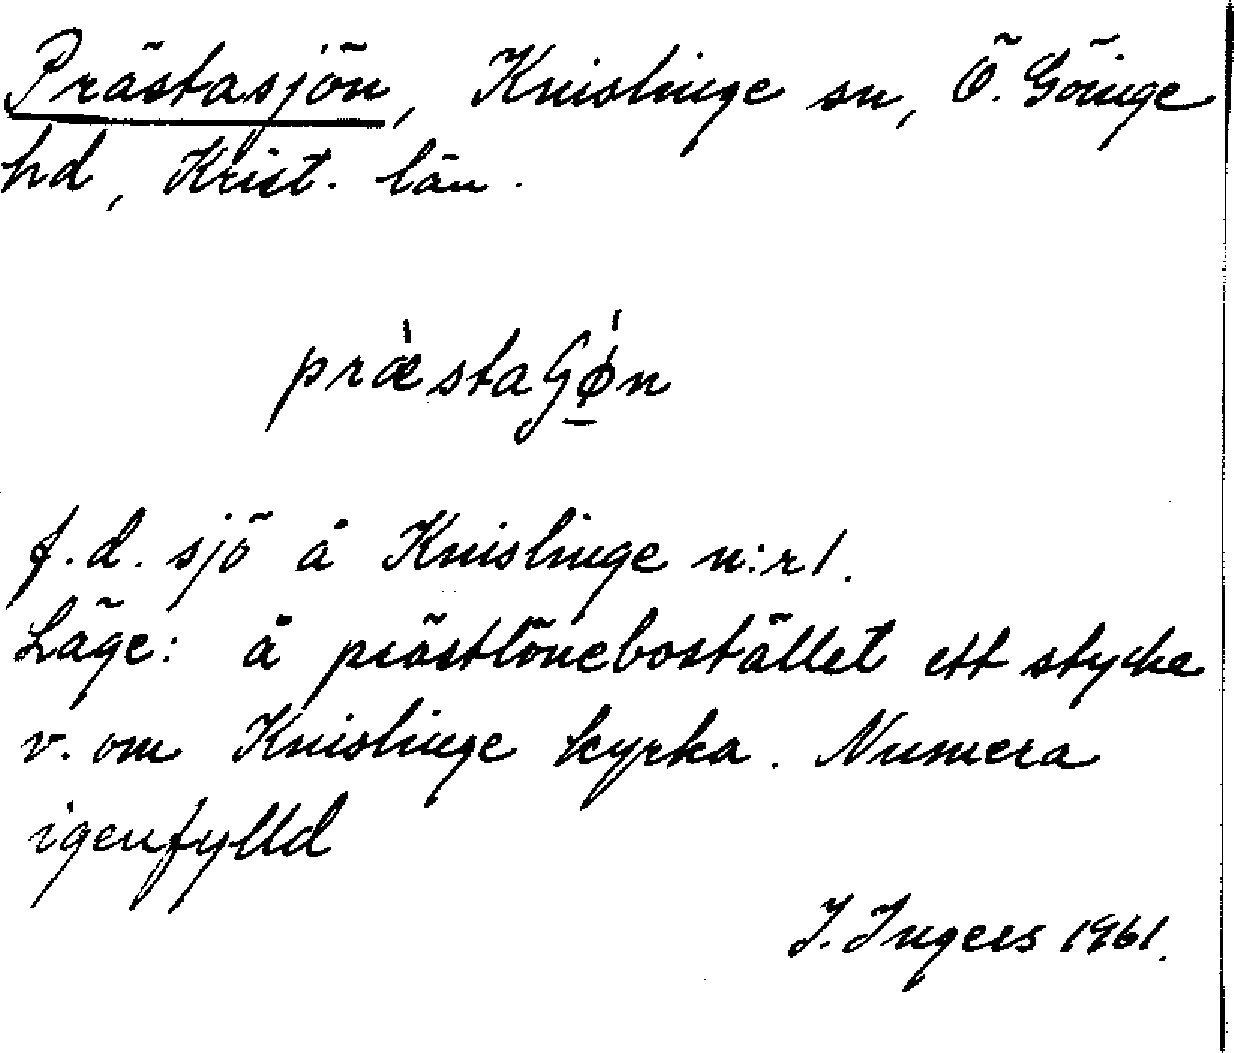 Prästasjön, Knislinge sn, Ö. Göinge
hd, Krist. län.
præ̀staɧǿn
f.d. sjö å Knislinge n:r 1.
Läge: å prästlönebostället ett stycke
v. om Knislinge kyrka. Numera
igenfylld
I. Ingers 1961.